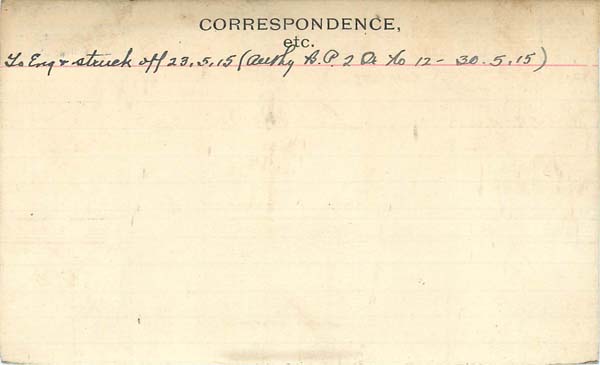 CORRESPONDENCE,
etc.
To Eng & struck off 23.5.15 (Authy B.P. 2 O. No 12 - 30.5.15)